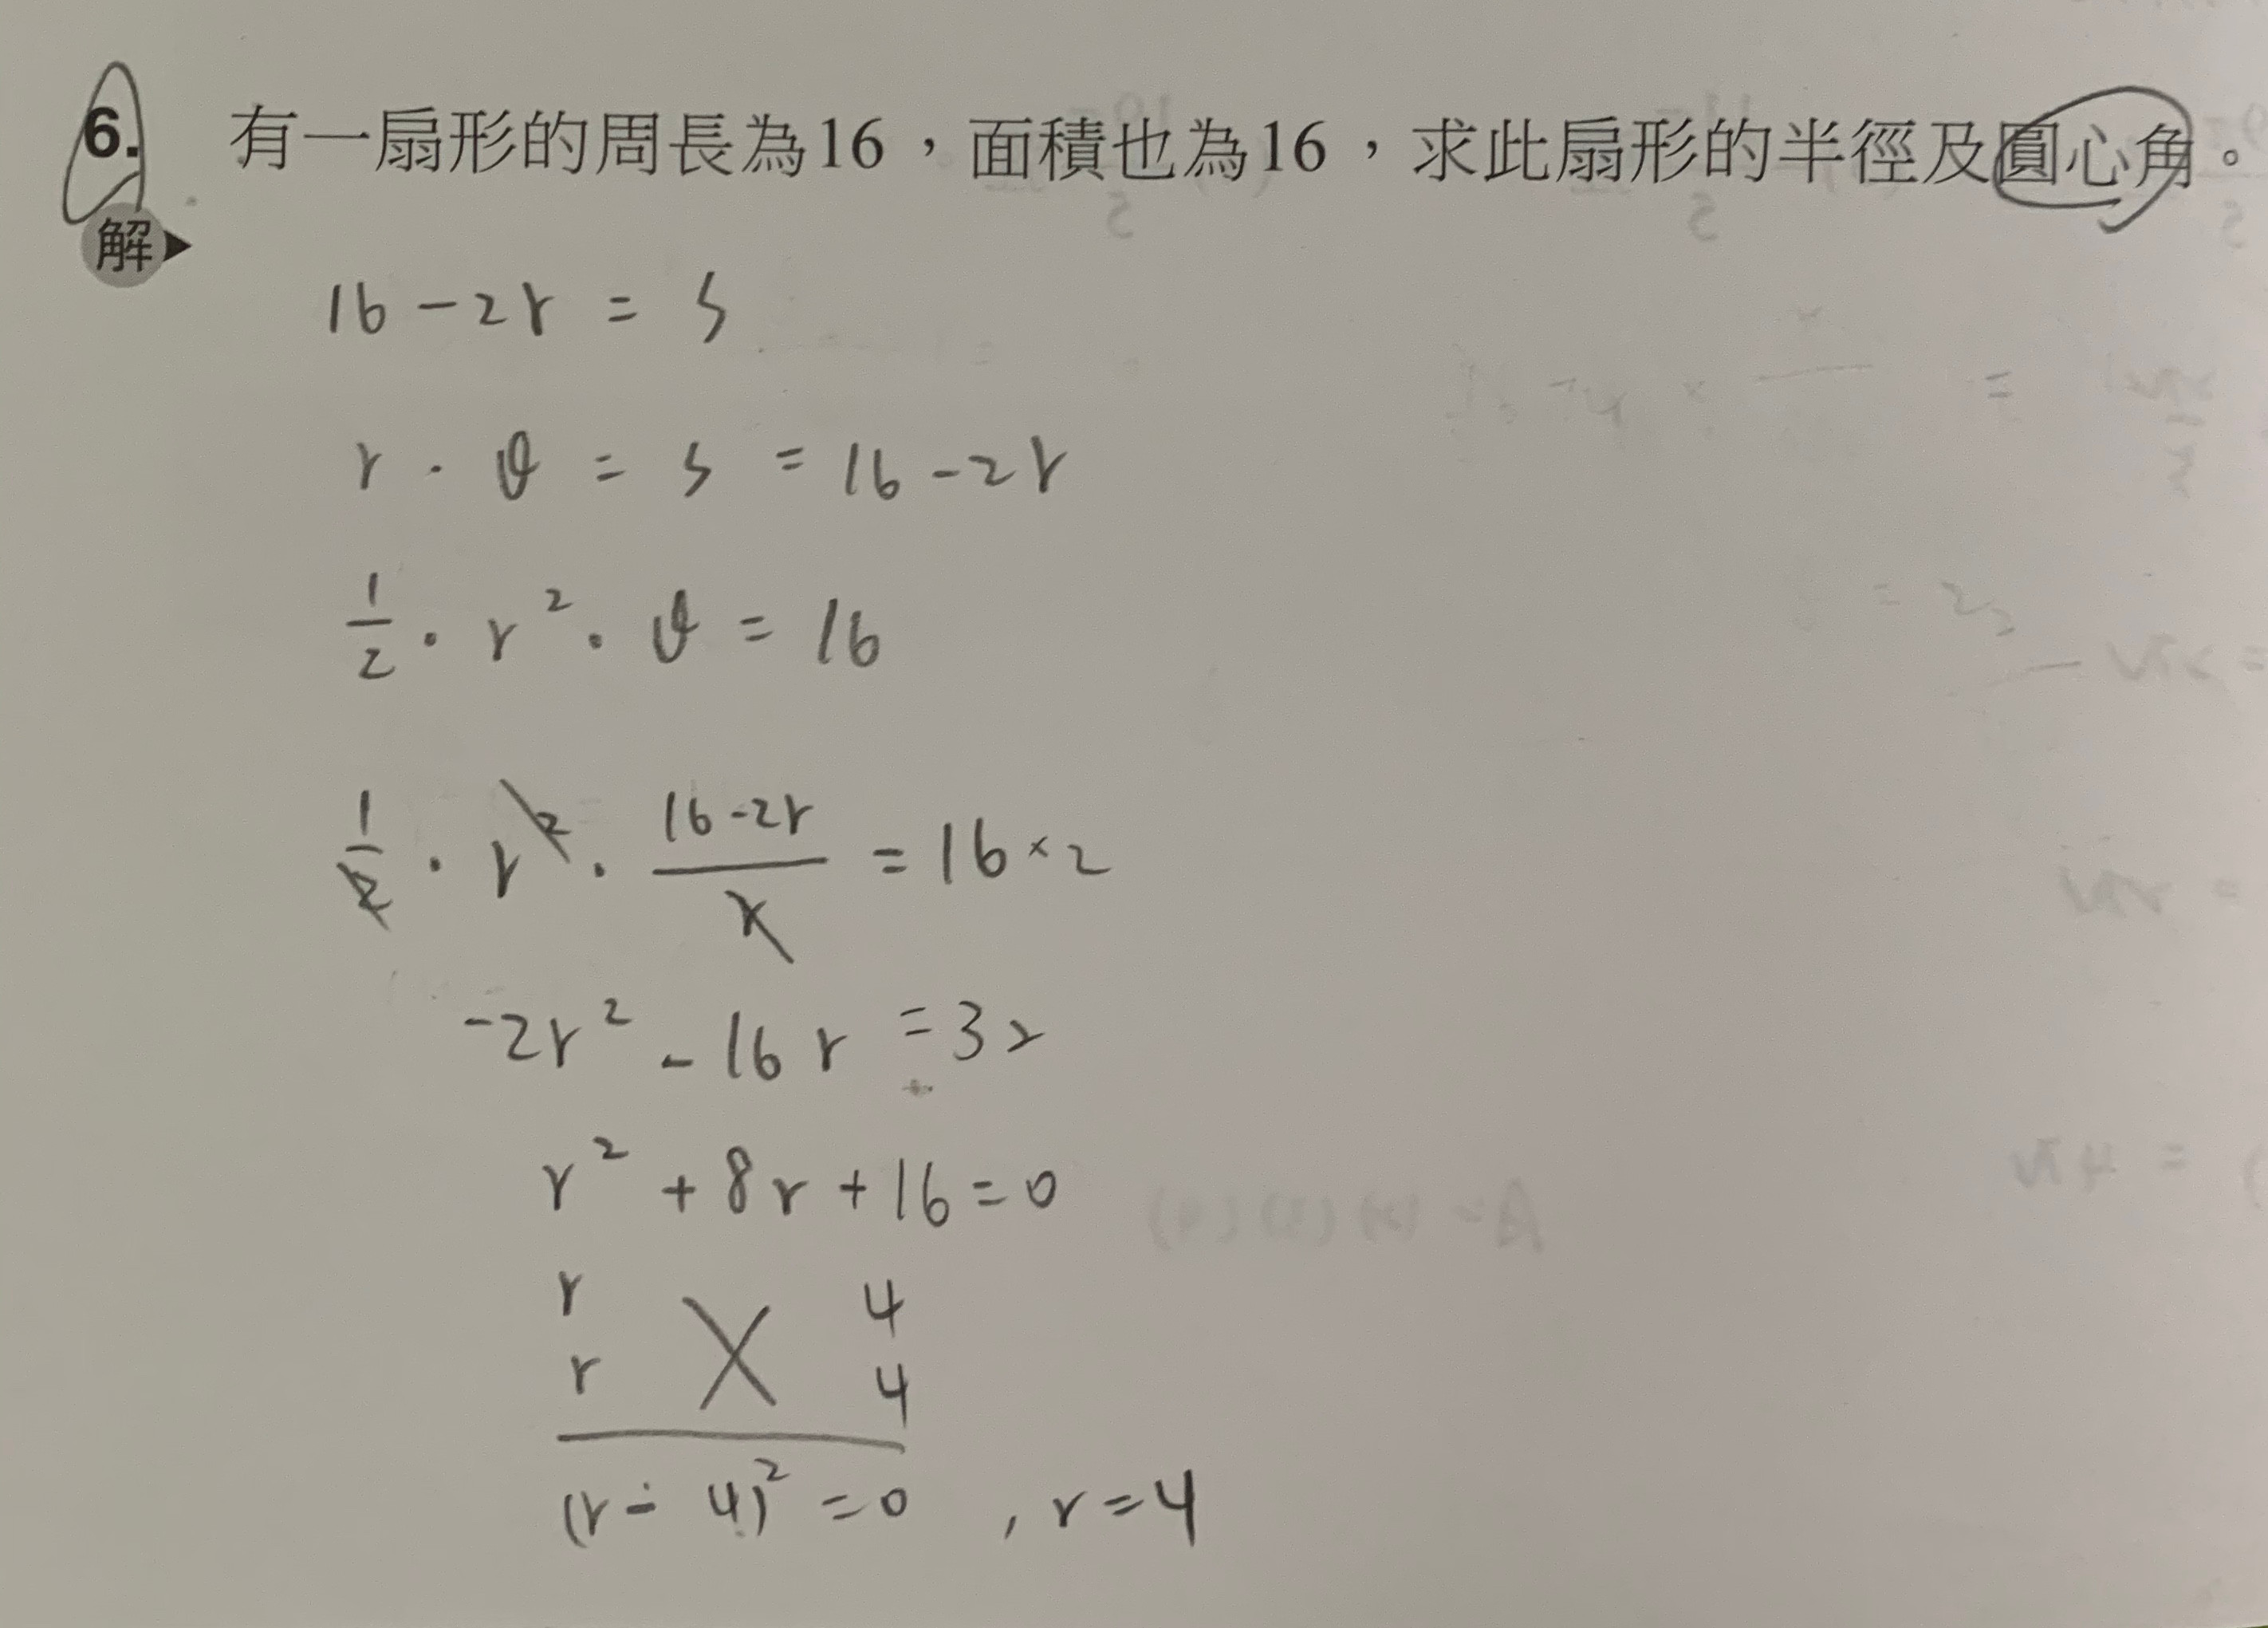 6. 有一扇形的周長為16，面積也為16，求此扇形的半徑及圓心角。
解▶
16 - 2r = s
r · θ = s = 16 - 2r
1/2 · r² · θ = 16
1/2 · r² · (16-2r)/r = 16 × 2
-2r² - 16r = 32
r² + 8r + 16 = 0
r 4
r 4
(r - 4)² = 0 , r = 4